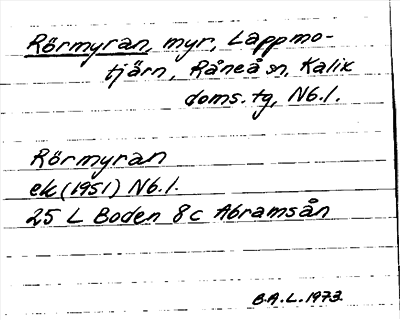 Rörmyran, myr, Lappmo-
tjärn, Råneå sn, Kalix
doms. tg, Nb.l.
Rörmyran
ek (1951) Nb.l.
25 L Boden 8c Abramsån
B.A.L. 1973